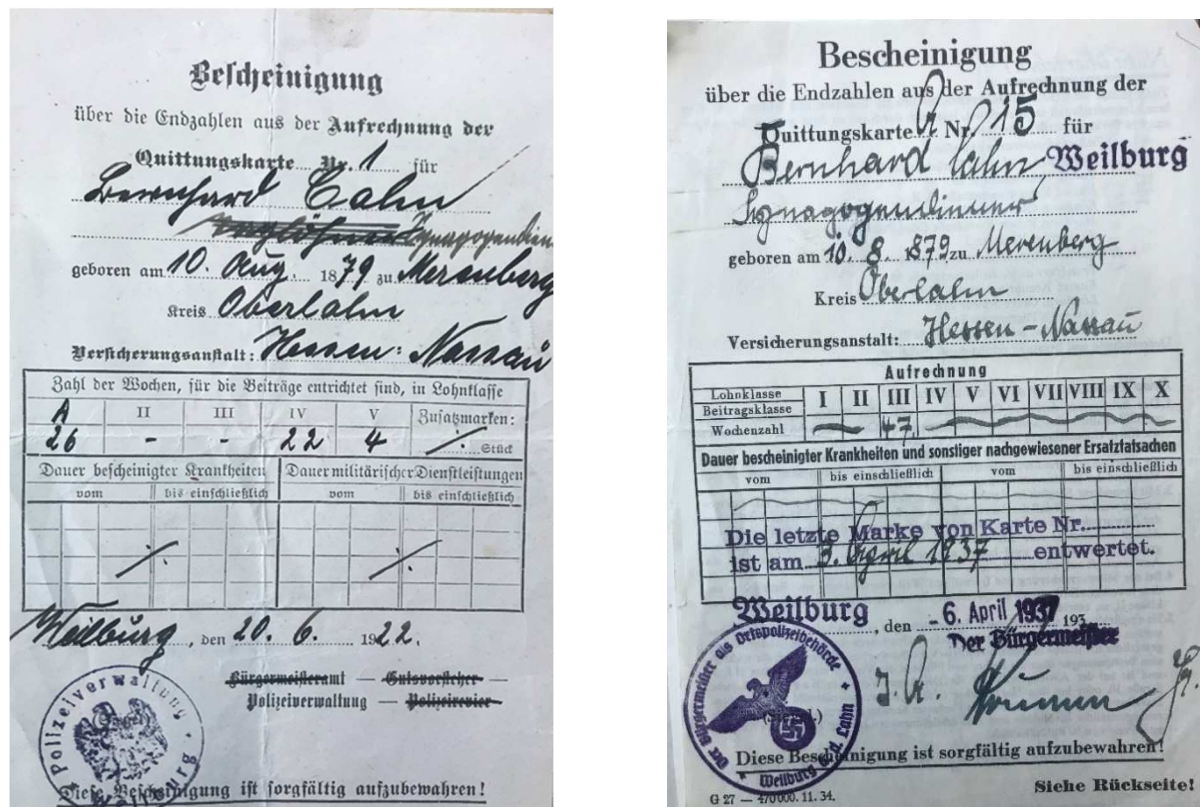 Bescheinigung
über die Endzahlen aus der Aufrechnung der
Quittungskarte Nr. 1 für
Bernhard Cahn
Synagogendien
geboren am 10. Aug. 1879 zu Merenberg
Kreis Oberlahn
Versicherungsanstalt: Hessen-Nassau
Zahl der Wochen, für die Beiträge entrichtet sind, in Lohnklasse
A II III IV V Zusatzmarken:
26 - - 22 4 ./. Stück
Dauer bescheinigter Krankheiten Dauer militärischer Dienstleistungen
vom bis einschließlich vom bis einschließlich
./. ./.
Weilburg, den 20. 6. 1922.
Bürgermeisteramt — Gutsvorsteher —
Polizeiverwaltung — Polizeirevier
Polizeiverwaltung Weilburg
Diese Bescheinigung ist sorgfältig aufzubewahren!
Bescheinigung
über die Endzahlen aus der Aufrechnung der
Quittungskarte A Nr. 15 für
Bernhard Cahn Weilburg
Synagogendiener
geboren am 10. 8. 1879 zu Merenberg
Kreis Oberlahn
Versicherungsanstalt: Hessen-Nassau
Aufrechnung
Lohnklasse
Beitragsklasse
I II III IV V VI VII VIII IX X
Wochenzahl 47.
Dauer bescheinigter Krankheiten und sonstiger nachgewiesener Ersatztatsachen
vom bis einschließlich vom bis einschließlich
Die letzte Marke von Karte Nr.
ist am 3. April 1937 entwertet.
Weilburg, den -6. April 1937 193
Der Bürgermeister
J. A.
Der Bürgermeister als Ortspolizeibehörde
Weilburg a.d. Lahn
Diese Bescheinigung ist sorgfältig aufzubewahren!
Siehe Rückseite!
G 27 — 470000. 11. 34.